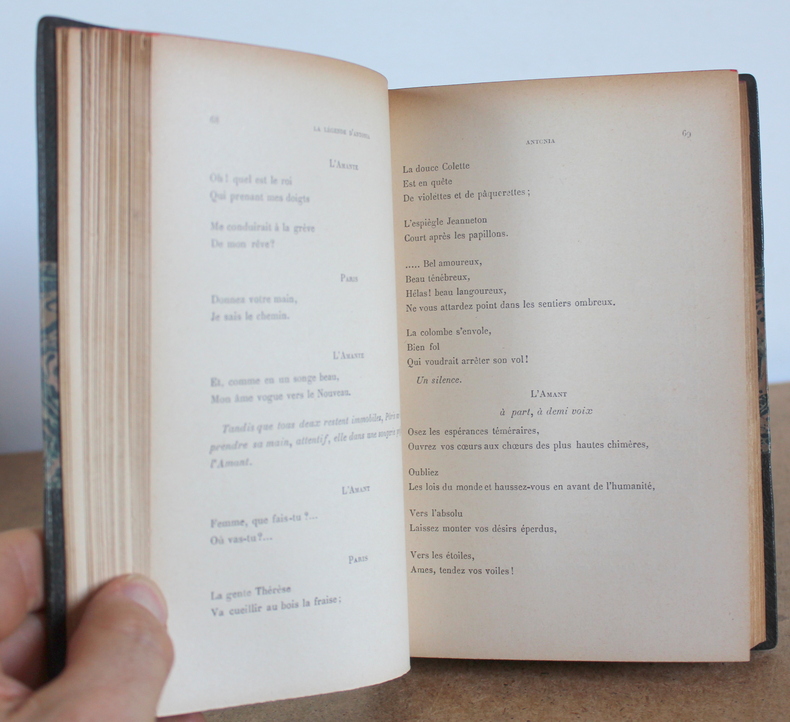 68
LA LÉGENDE D'ANTONIA
L'Amante
Oh! quel est le roi
Qui prenant mes doigts
Me conduirait à la grève
De mon rêve?
Paris
Donnez votre main,
Je sais le chemin.
L'Amante
Et, comme en un songe beau,
Mon âme vogue vers le Nouveau.
Tandis que tous deux restent immobiles, Paris
prendre sa main, attentif, elle dans une
l'Amant.
L'Amant
Femme, que fais-tu ?...
Où vas-tu ?...
Paris
La gente Thérèse
Va cueillir au bois la fraise;
ANTONIA
69
La douce Colette
Est en quête
De violettes et de pâquerettes ;
L'espiègle Jeanneton
Court après les papillons.
..... Bel amoureux,
Beau ténébreux,
Hélas! beau langoureux,
Ne vous attardez point dans les sentiers ombreux.
La colombe s'envole,
Bien fol
Qui voudrait arrêter son vol!
Un silence.
L'Amant
à part, à demi voix
Osez les espérances téméraires,
Ouvrez vos cœurs aux chœurs des plus hautes chimères,
Oubliez
Les lois du monde et haussez-vous en avant de l'humanité,
Vers l'absolu
Laissez monter vos désirs éperdus,
Vers les étoiles,
Ames, tendez vos voiles!